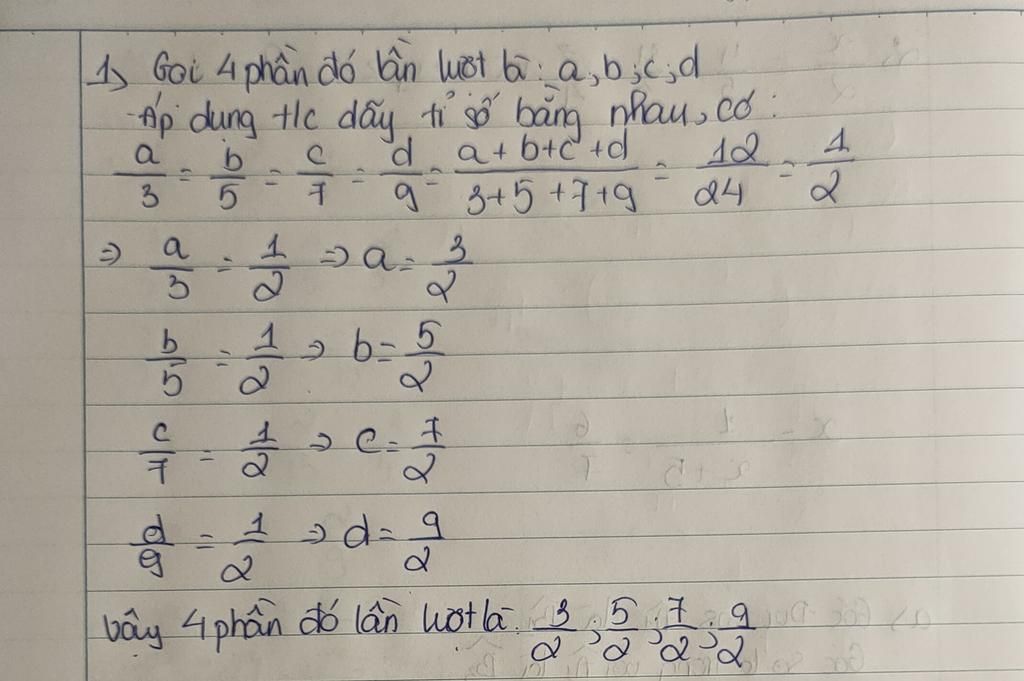 1, Gọi 4 phần đó lần lượt là: a, b, c, d
Áp dụng t/c dãy tỉ số bằng nhau, có:
a/3 = b/5 = c/7 = d/9 = (a+b+c+d)/(3+5+7+9) = 12/24 = 1/2
⇒ a/3 = 1/2 ⇒ a = 3/2
b/5 = 1/2 ⇒ b = 5/2
c/7 = 1/2 ⇒ c = 7/2
d/9 = 1/2 ⇒ d = 9/2
Vậy 4 phần đó lần lượt là: 3/2; 5/2; 7/2; 9/2